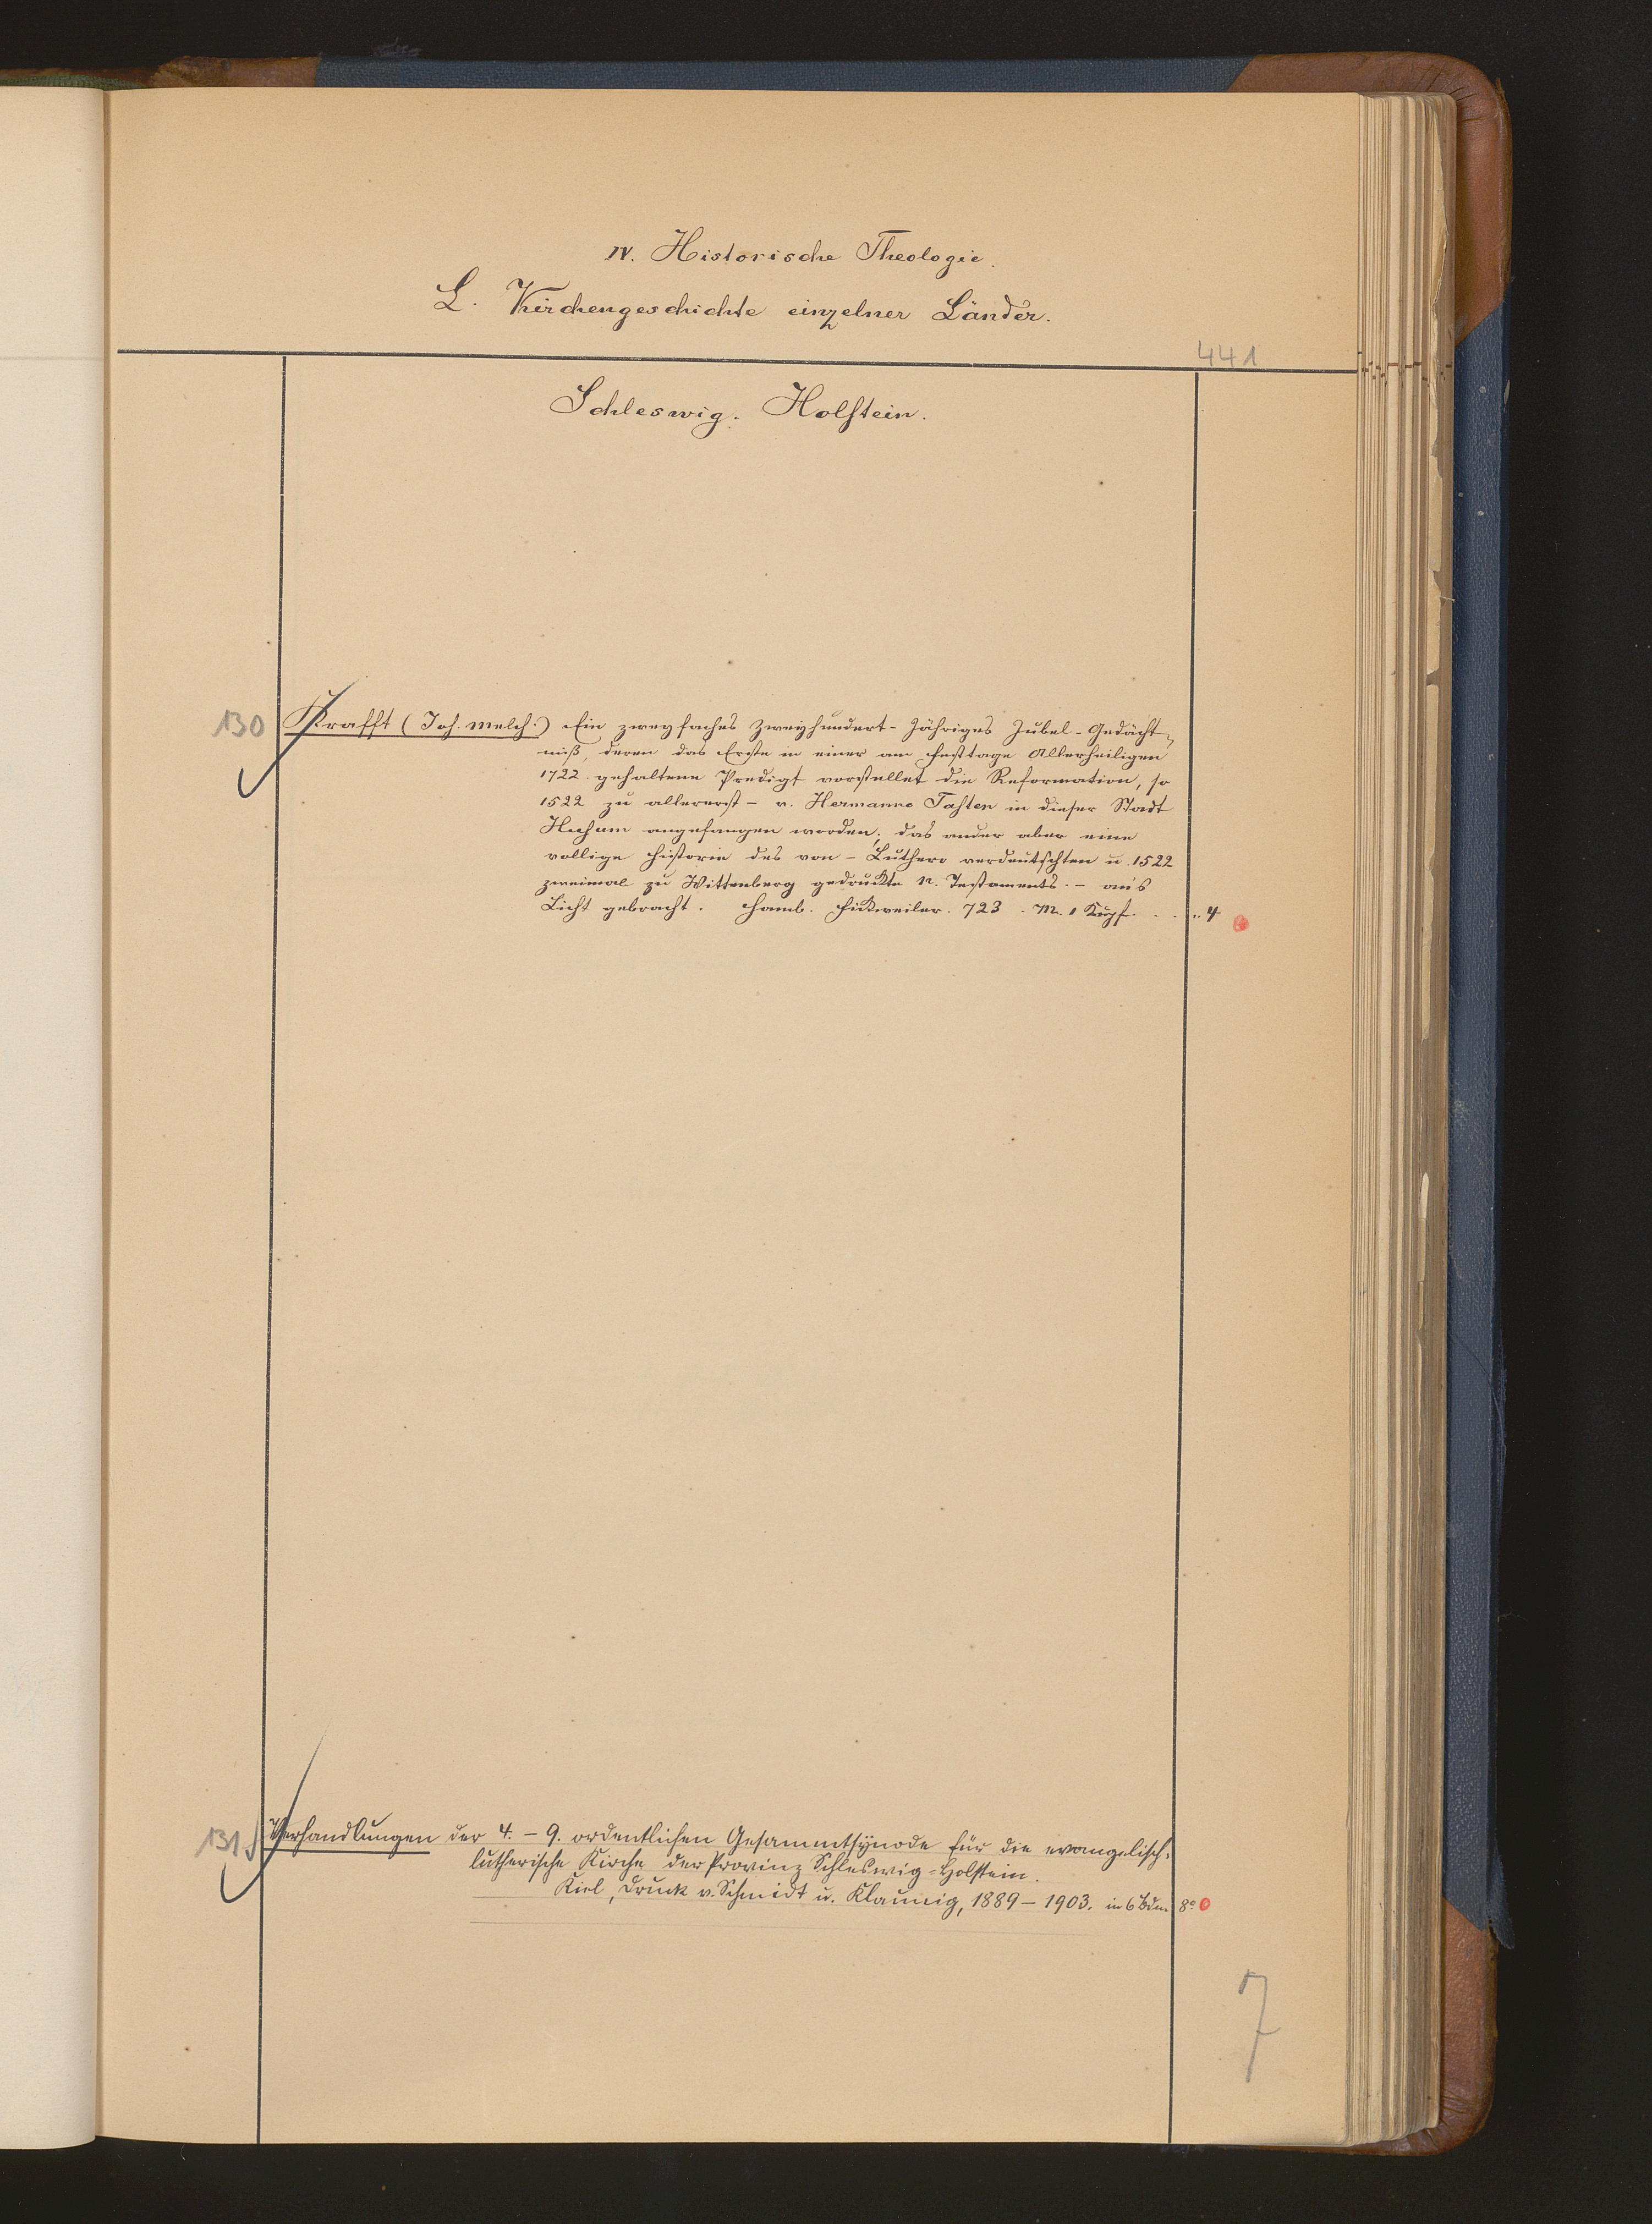 IV. Historische Theologie.
L. Kirchengeschichte einzelner Länder.
441
Schleswig-Holstein.
130 Krafft (Joh. Melch.) Ein zweyfaches Zweyhundert-Jähriges Jubel-Gedächt-
niß, deren das Erste in einer am Festtage Allerheiligen
1722 gehaltene Predigt vorstellet die Reformation, so
1522 zu allererst - v. Hermanno Tasten in dieser Stadt
Husum angefangen worden; das ander aber eine
vollige Historie des von - Luthero verdeutschten u. 1522
zweimal zu Wittenberg gedruckte N. Testaments. - ans
Licht gebracht. Hamb. Fickweiler. 723. M. 1 Kupf. . . . . 4
131 Verhandlungen der 4. - 9. ordentlichen Gesammtsynode für die evangelisch-
lutherische Kirche der Provinz Schleswig-Holstein.
Kiel, Druck v. Schmidt u. Klaunig, 1889 - 1903. in 6 Bdn 8°
7